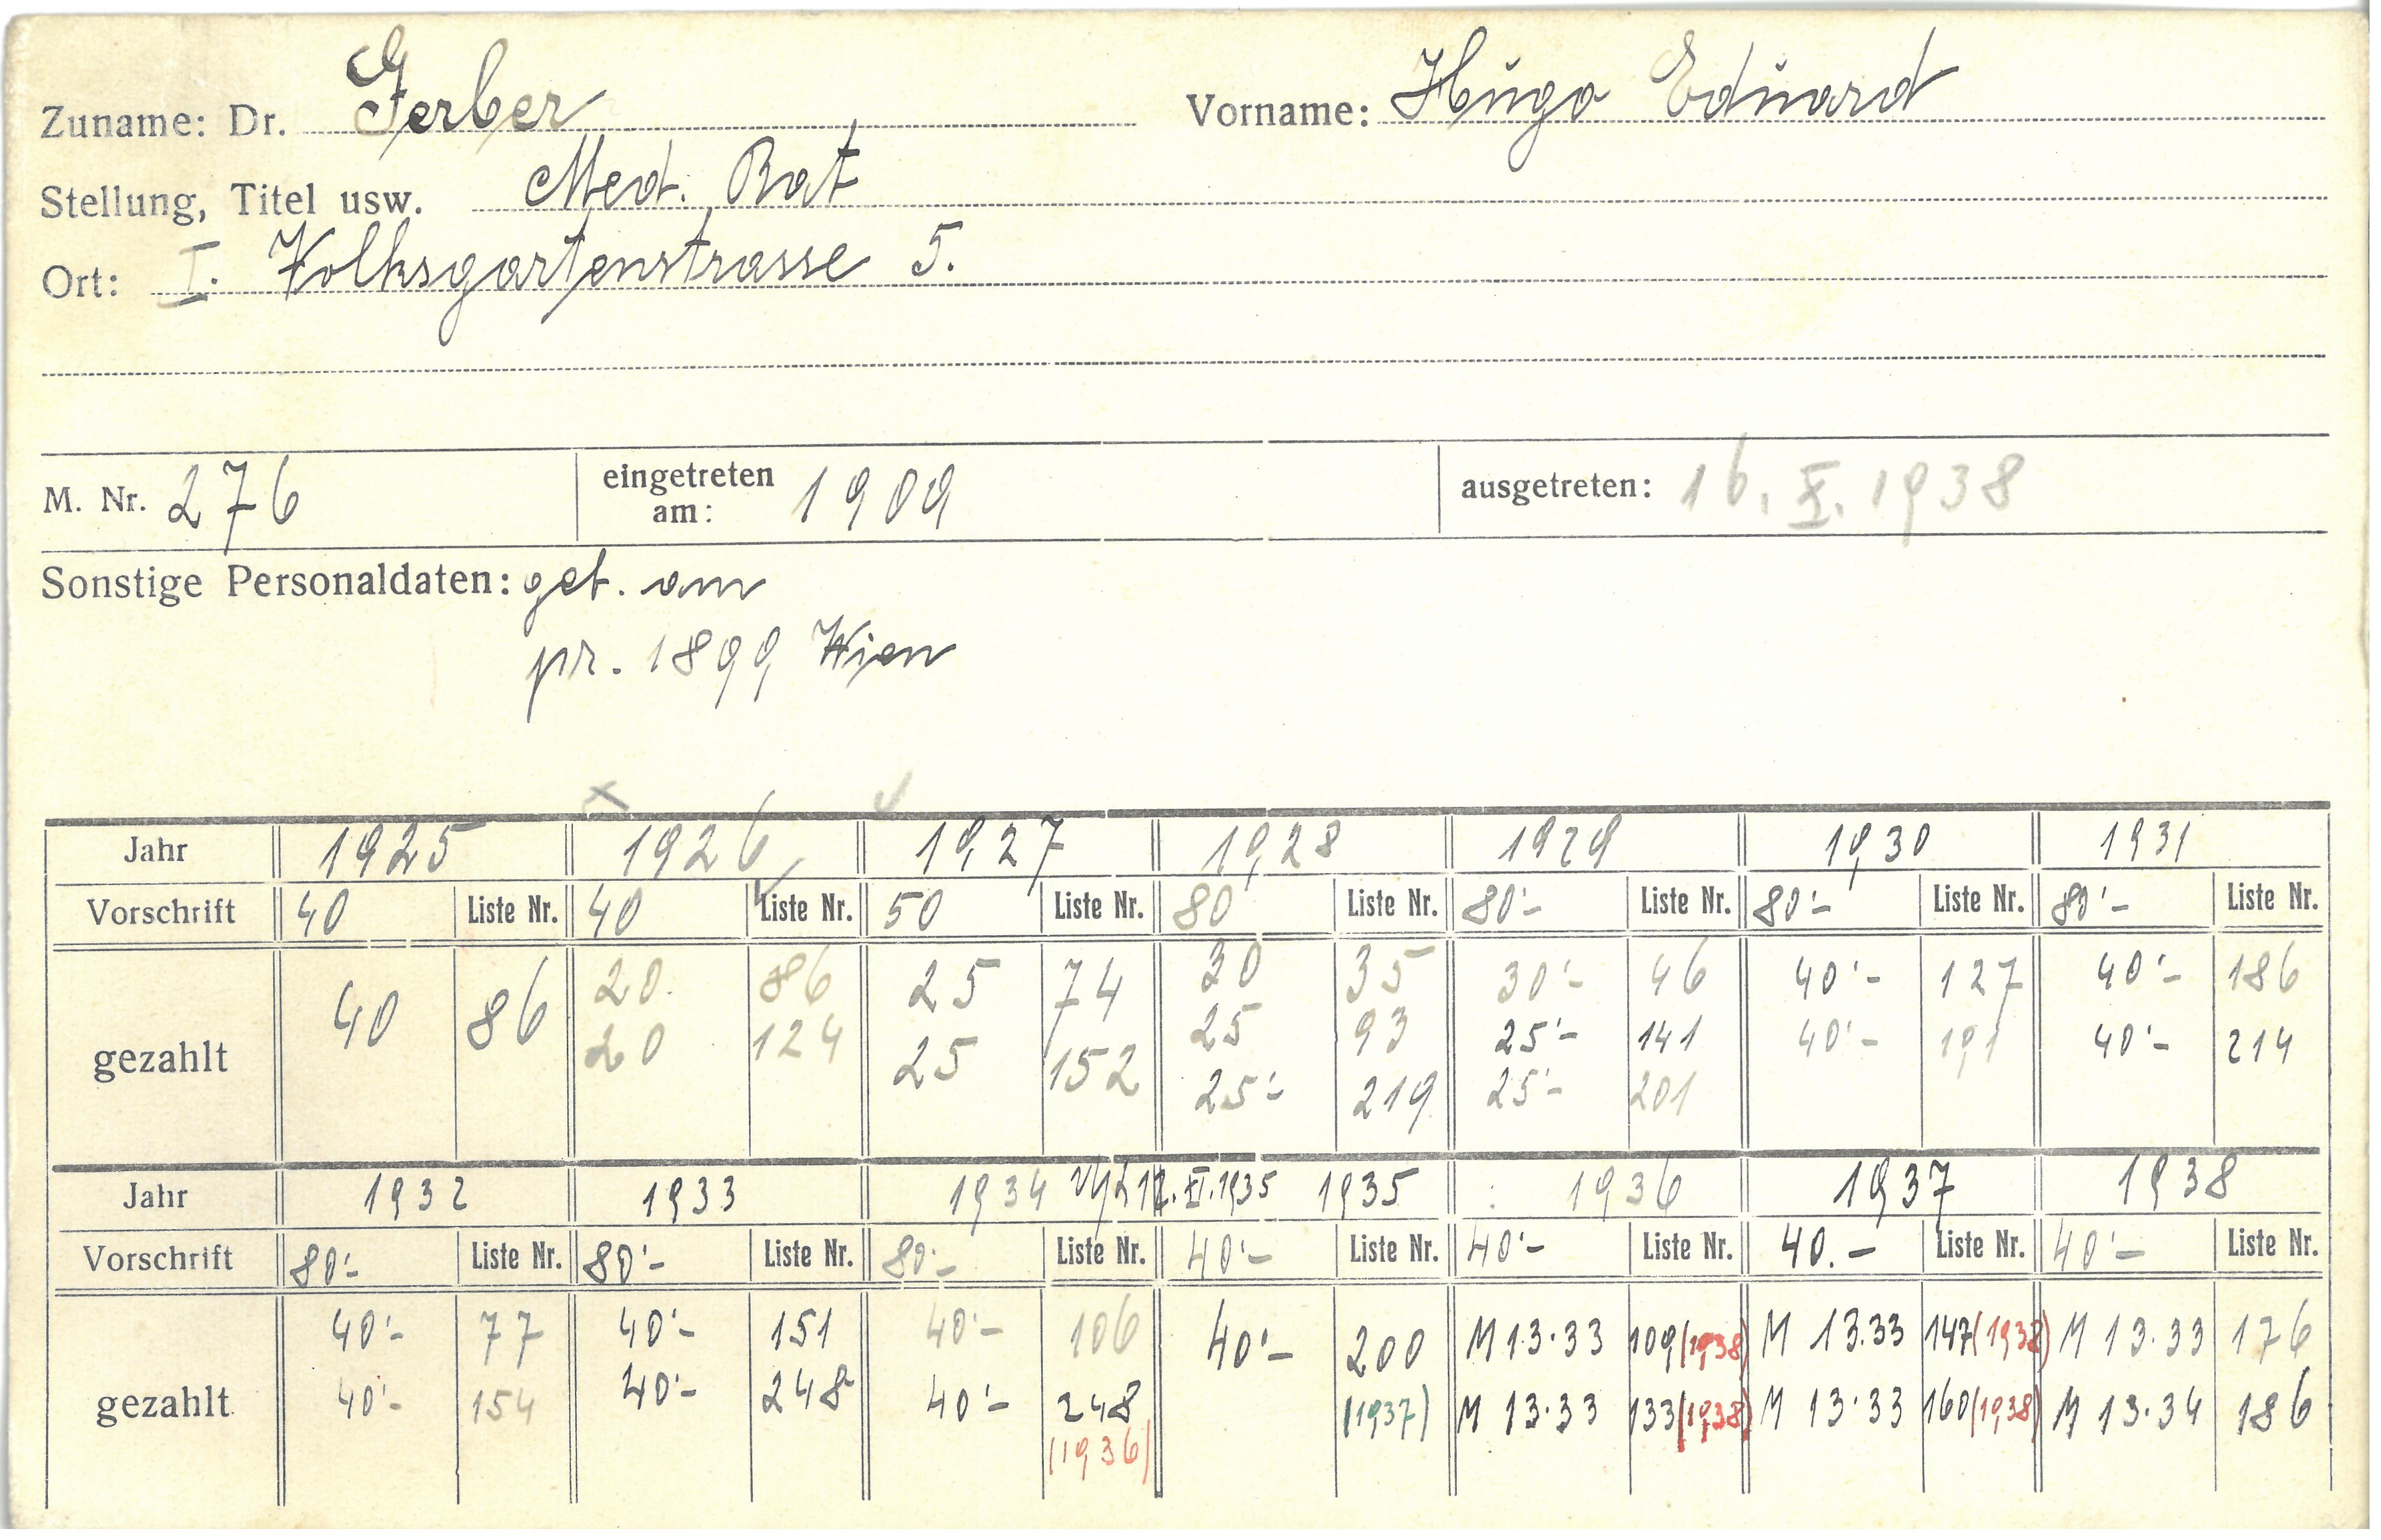 Zuname: Dr. Gerber Vorname: Hugo Eduard
Stellung, Titel usw. Med. Rat
Ort: I. Volksgartenstrasse 5.
M. Nr. 276 eingetreten am: 1909 ausgetreten: 16. X. 1938
Sonstige Personaldaten: geb. am
pr. 1899 Wien
Jahr 1925 1926 1927 1928 1929 1930 1931
Vorschrift 40 Liste Nr. 40 Liste Nr. 50 Liste Nr. 80 Liste Nr. 80'- Liste Nr. 80'- Liste Nr. 80'- Liste Nr.
gezahlt 40 86 20 86 25 74 30 35 30'- 46 40'- 127 40'- 186
20 124 25 152 25 93 25'- 141 40'- 191 40'- 214
25'- 219 25'- 201
Jahr 1932 1933 1934 12. XI. 1935 1935 1936 1937 1938
Vorschrift 80'- Liste Nr. 80'- Liste Nr. 80'- Liste Nr. 40'- Liste Nr. 40'- Liste Nr. 40.- Liste Nr. 40'- Liste Nr.
gezahlt 40'- 77 40'- 151 40'- 106 40'- 200 M 13.33 109 (1938) M 13.33 147 (1938) M 13.33 176
40'- 154 40'- 248 40'- 248 (1937) M 13.33 133 (1938) M 13.33 160 (1938) M 13.34 186
(1936)